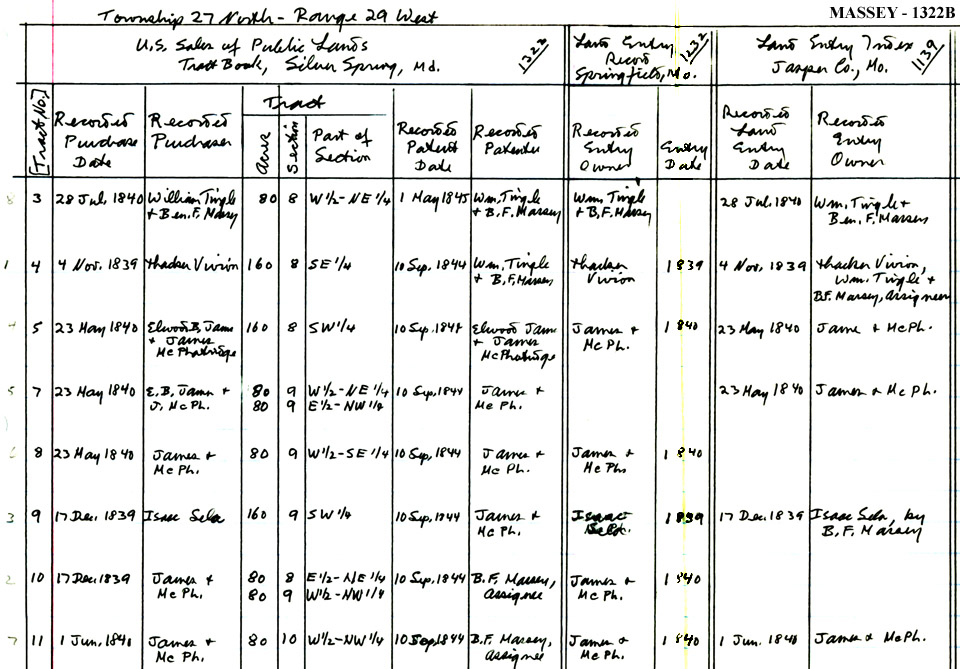 Township 27 North - Range 29 West
MASSEY - 1322B
U.S. Sales of Public Lands
Tract Book, Silver Spring, Md.
1322
Land Entry
Record
Springfield, Mo.
1232
Land Entry Index
Jasper Co., Mo.
1139
[Tract No.]
Recorded Purchase Date
Recorded Purchaser
Tract
Acre
Section
Part of Section
Recorded Patent Date
Recorded Patentee
Recorded Entry Owner
Entry Date
Recorded Land Entry Date
Recorded Entry Owner
8 3 28 Jul, 1840 William Tingle 80 8 W 1/2 - NE 1/4 1 May 1845 Wm. Tingle Wm. Tingle 28 Jul, 1840 Wm. Tingle +
+ Ben. F. Massey + B.F. Massey + B.F. Massey Ben. F. Massey
1 4 4 Nov. 1839 Thacker Vivion 160 8 SE 1/4 10 Sep, 1844 Wm. Tingle Thacker 1839 4 Nov. 1839 Thacker Vivion,
+ B.F. Massey Vivion Wm. Tingle +
B.F. Massey, Assignees
4 5 23 May 1840 Elwood B. James 160 8 SW 1/4 10 Sep, 1844 Elwood James James + 1840 23 May 1840 James + McPh.
+ James + James McPh.
McPhatridge McPhatridge
5 7 23 May 1840 E. B. James + 80 9 W 1/2 - NE 1/4 10 Sep, 1844 James + 23 May 1840 James + McPh.
J. McPh. 80 9 E 1/2 - NW 1/4 McPh.
8 23 May 1840 James + 80 9 W 1/2 - SE 1/4 10 Sep, 1844 James + James + 1840
McPh. McPh. McPh
3 9 17 Dec. 1839 Isaac Sela 160 9 SW 1/4 10 Sep, 1844 James + Isaac 1839 17 Dec 1839 Isaac Sela, by
McPh. B.F. Massey
2 10 17 Dec 1839 James + 80 8 E 1/2 - NE 1/4 10 Sep, 1844 B.F. Massey, James + 1840
McPh. 80 9 W 1/2 - NW 1/4 Assignee McPh.
7 11 1 Jun, 1840 James + 80 10 W 1/2 - NW 1/4 10 Sep 1844 B.F. Massey, James + 1840 1 Jun. 1840 James + McPh.
McPh. Assignee McPh.